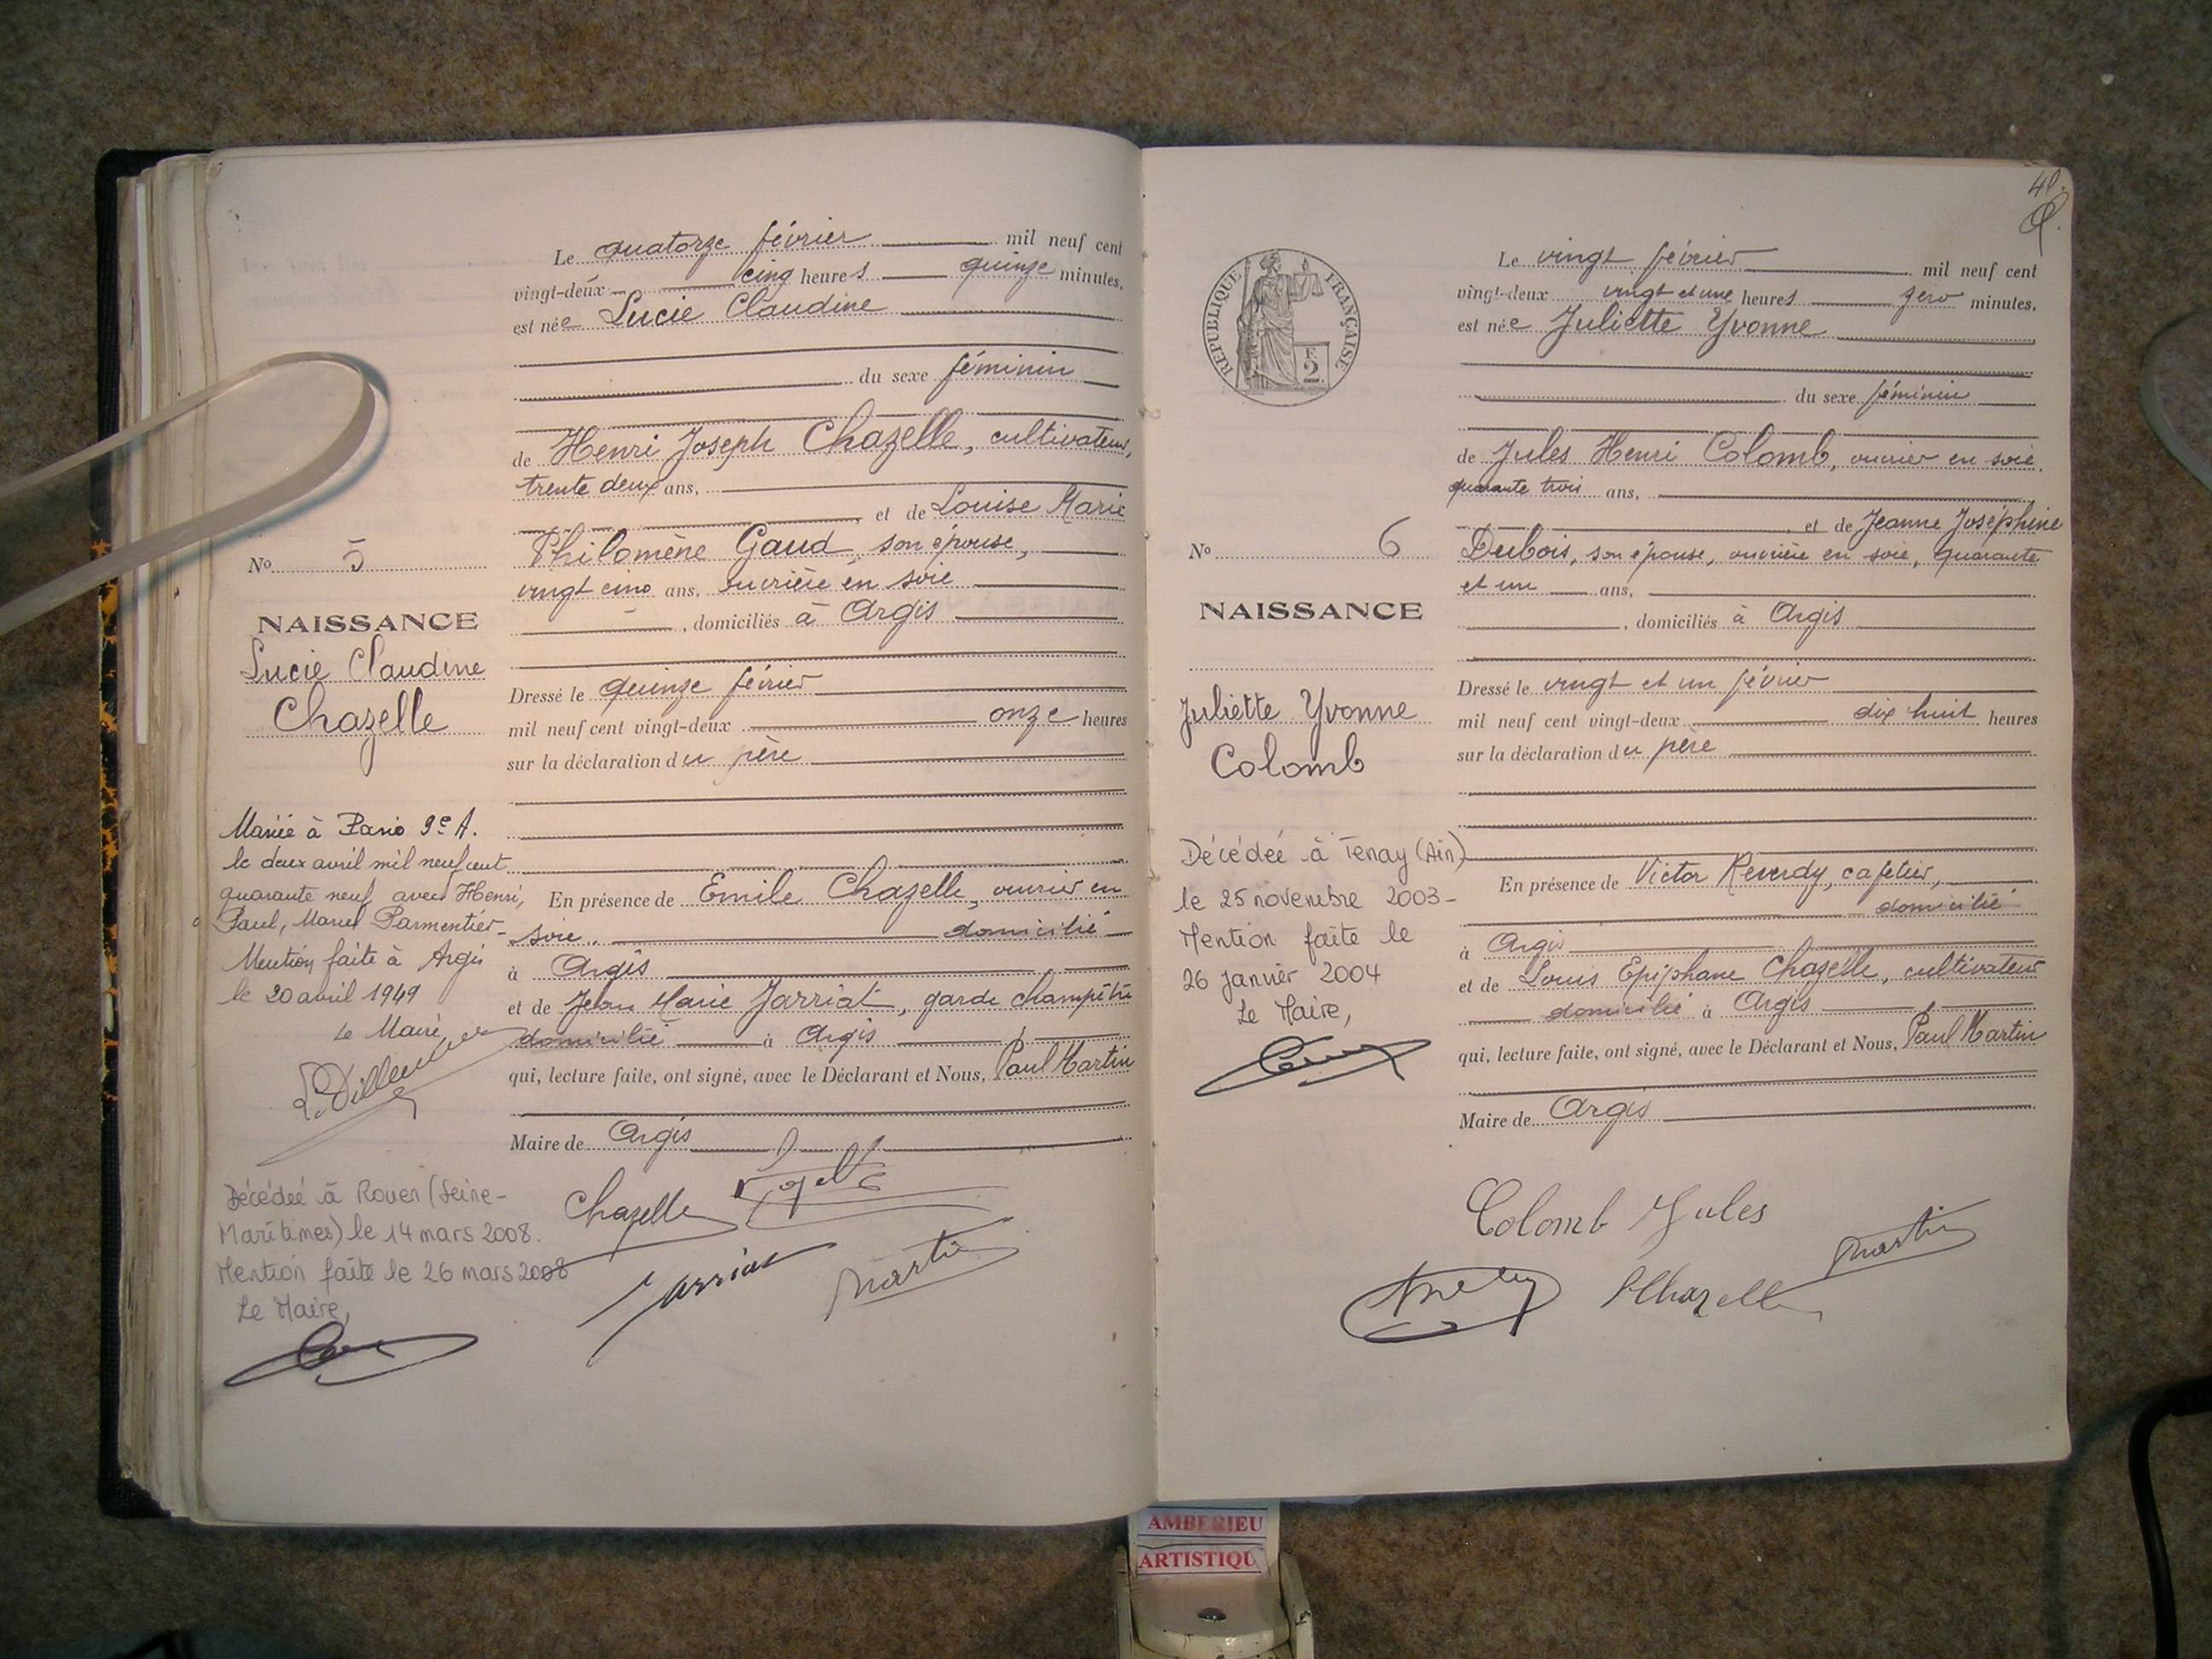 Le quatorze février mil neuf cent
vingt-deux cinq heures quinze minutes,
est née Lucie Claudine
du sexe féminin
de Henri Joseph Chazelle, cultivateur,
trente deux ans,
et de Louise Marie
Philomène Gaud, son épouse,
vingt cinq ans, ouvrière en soie
, domiciliés à Argis
Dressé le quinze février
mil neuf cent vingt-deux onze heures
sur la déclaration du père
En présence de Emile Chazelle, ouvrier en
soie, domicilié
à Argis
et de Jean Marie Jarriat, garde champêtre
domicilié à Argis
qui, lecture faite, ont signé, avec le Déclarant et Nous, Paul Martin
Maire de Argis
Chazelle
Jarriat Martin
No 5
NAISSANCE
Lucie Claudine
Chazelle
Mariée à Paris 9e A.
le deux avril mil neuf cent
quarante neuf avec Henri,
Paul, Marcel Parmentier-
Mention faite à Argis
le 20 avril 1949
Le Maire,
Décédée à Rouen (Seine-
Maritimes) le 14 mars 2008.
Mention faite le 26 mars 2008
Le Maire,
REPUBLIQUE FRANÇAISE
F.
2
Le vingt février mil neuf cent
vingt-deux vingt et une heures zero minutes,
est née Juliette Yvonne
du sexe féminin
de Jules Henri Colomb, ouvrier en soie,
quarante trois ans,
et de Jeanne Joséphine
Dubois, son épouse, ouvrière en soie, quarante
et un ans,
, domiciliés à Argis
Dressé le vingt et un février
mil neuf cent vingt-deux dix huit heures
sur la déclaration du père
En présence de Victor Reverdy, cafetier,
domicilié
à Argis
et de Louis Epiphane Chazelle, cultivateur
domicilié à Argis
qui, lecture faite, ont signé, avec le Déclarant et Nous, Paul Martin
Maire de Argis
Colomb Jules
Martin
No 6
NAISSANCE
Juliette Yvonne
Colomb
Décédée à Tenay (Ain)
le 25 novembre 2003-
Mention faite le
26 janvier 2004
Le Maire,
AMBERIEU
ARTISTIQU